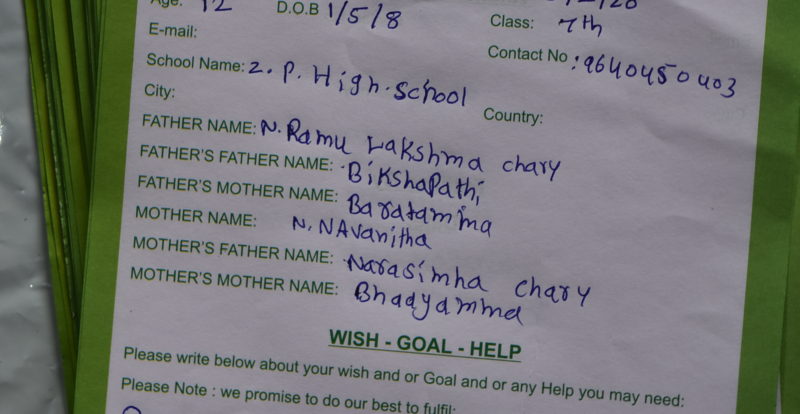 Age: 12 D.O.B 1/5/8
Class: 7th
E-mail:
Contact No: 9640450403
School Name: Z. P. High. school
City: Country:
FATHER NAME: N. Ramu Lakshma chary
FATHER'S FATHER NAME: Bikshapathi
FATHER'S MOTHER NAME: Baratamma
MOTHER NAME: N. NAvanitha
MOTHER'S FATHER NAME: Narasimha chary
MOTHER'S MOTHER NAME: Bhadyamma
WISH - GOAL - HELP
Please write below about your wish and or Goal and or any Help you may need:
Please Note : we promise to do our best to fulfil: